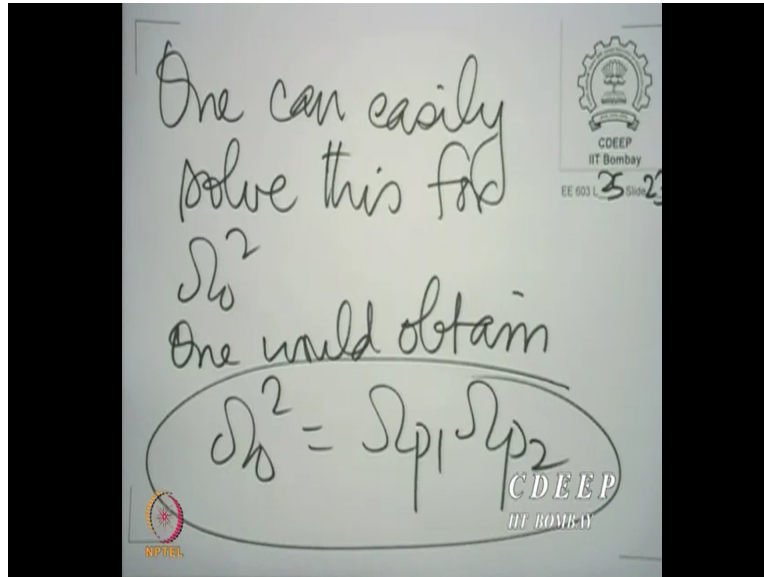 One can easily
solve this for
Ω₀²
One would obtain
Ω₀² = Ωp₁ Ωp₂
CDEEP
IIT Bombay
EE 603 L 25 Slide 23
CDEEP
IIT BOMBAY
NPTEL